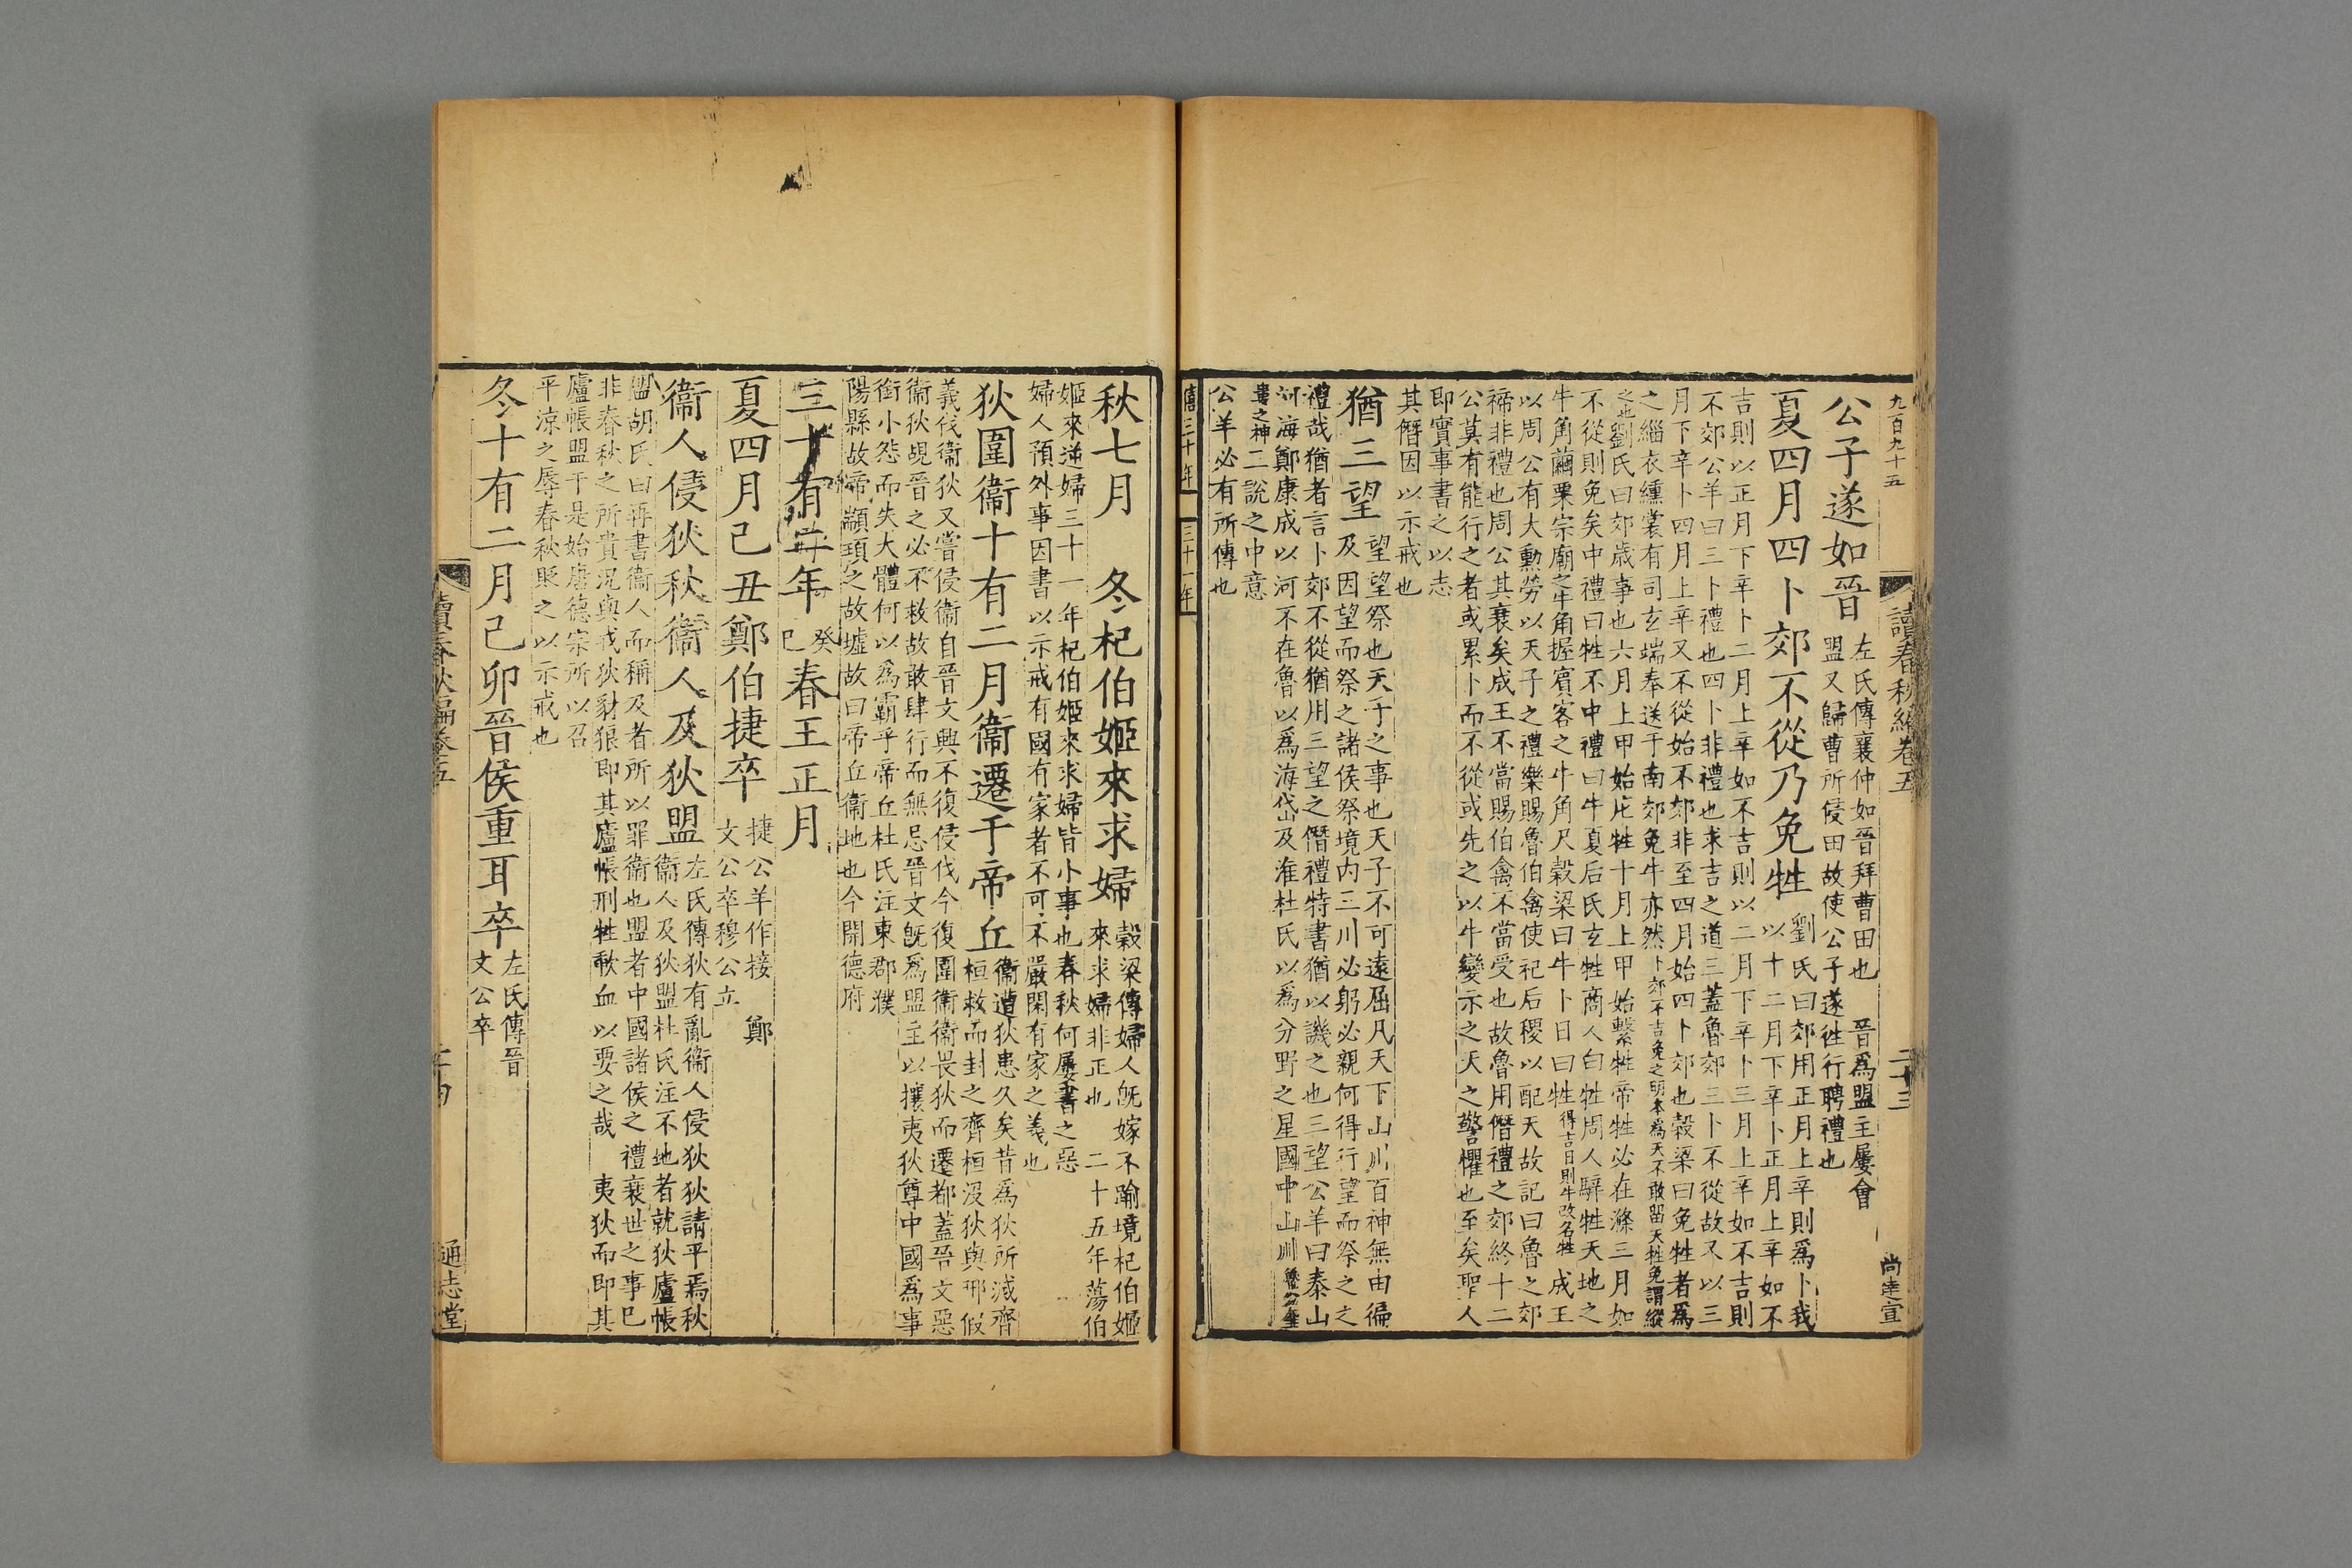 九百九十五
讀春秋編卷五
二十三
尚達宣
公子遂如晉
左氏傳襄仲如晉拜曹田也 晉爲盟主屢會
盟又歸曹所侵田故使公子遂徃行聘禮也
夏四月四卜郊不從乃免牲
劉氏曰郊用正月上辛則爲卜我
以十二月下辛卜正月上辛如不
吉則以正月下辛卜二月上辛如不吉則以二月下辛卜三月上辛如不吉則
不郊公羊曰三卜禮也四卜非禮也求吉之道三蓋魯郊三卜不從故又以三
月下辛卜四月上辛又不從始不郊非至四月始四卜郊也穀梁曰免牲者爲
之緇衣纁裳有司玄端奉送于南郊免牛亦然卜郊不吉免之明本爲天不敢留天牲免謂縱
之也劉氏曰郊歲事也六月上甲始庀牲十月上甲始繫牲帝牲必在滌三月如
不從則免矣中禮曰牲不中禮曰牛夏后氏玄牲商人白牲周人騂牲天地之
牛角繭栗宗廟之牛角握賓客之牛角尺穀梁曰牛卜日曰牲得吉日則牛改名牲 成王
以周公有大勳勞以天子之禮樂賜魯伯禽使祀后稷以配天故記曰魯之郊
禘非禮也周公其衰矣成王不當賜伯禽不當受也故魯用僭禮之郊終十二
公莫有能行之者或累卜而不從或先之以牛變示之天之警懼也至矣聖人
即實事書之以志
其僭因以示戒也
猶三望
望望祭也天子之事也天子不可遠屈凡天下山川百神無由徧
及因望而祭之諸侯祭境内三川必躬必親何得行望而祭之之
禮哉猶者言卜郊不從猶用三望之僭禮特書猶以譏之也三望公羊曰泰山
河海鄭康成以河不在魯以爲海岱及淮杜氏以爲分野之星國中山川
之神二說之中意
公羊必有所傳也
僖三十年
三十一年
秋七月 冬杞伯姬來求婦
穀梁傳婦人旣嫁不踰境杞伯姬
來求婦非正也 二十五年蕩伯
姬來逆婦三十一年杞伯姬來求婦皆小事也春秋何屢書之惡
婦人預外事因書以示戒有國有家者不可不嚴閑有家之義也
狄圍衞十有二月衞遷于帝丘
衞遭狄患久矣昔爲狄所滅齊
桓救而封之齊桓沒狄與邢假
義伐衞狄又嘗侵衞自晉文興不復侵伐今復圍衞衞畏狄而遷都蓋晉文惡
衞狄覘晉之必不救故敢肆行而無忌晉文旣爲盟主以攘夷狄尊中國爲事
銜小怨而失大體何以爲霸乎帝丘杜氏注東郡濮
陽縣故帝顓頊之故墟故曰帝丘衞地也今開德府
三十有二年
癸
巳
春王正月
夏四月己丑鄭伯捷卒
捷公羊作接 鄭
文公卒穆公立
衞人侵狄秋衞人及狄盟
左氏傳狄有亂衞人侵狄狄請平焉秋
衞人及狄盟杜氏注不地者就狄廬帳
盟胡氏曰再書衞人而稱及者所以罪衞也盟者中國諸侯之禮衰世之事已
非春秋之所貴況與戎狄豺狼即其廬帳刑牲歃血以要之哉 夷狄而即其
廬帳盟于是始唐德宗所以召
平涼之辱春秋貶之以示戒也
冬十有二月己卯晉侯重耳卒
左氏傳晉
文公卒
讀春秋編卷五
通志堂